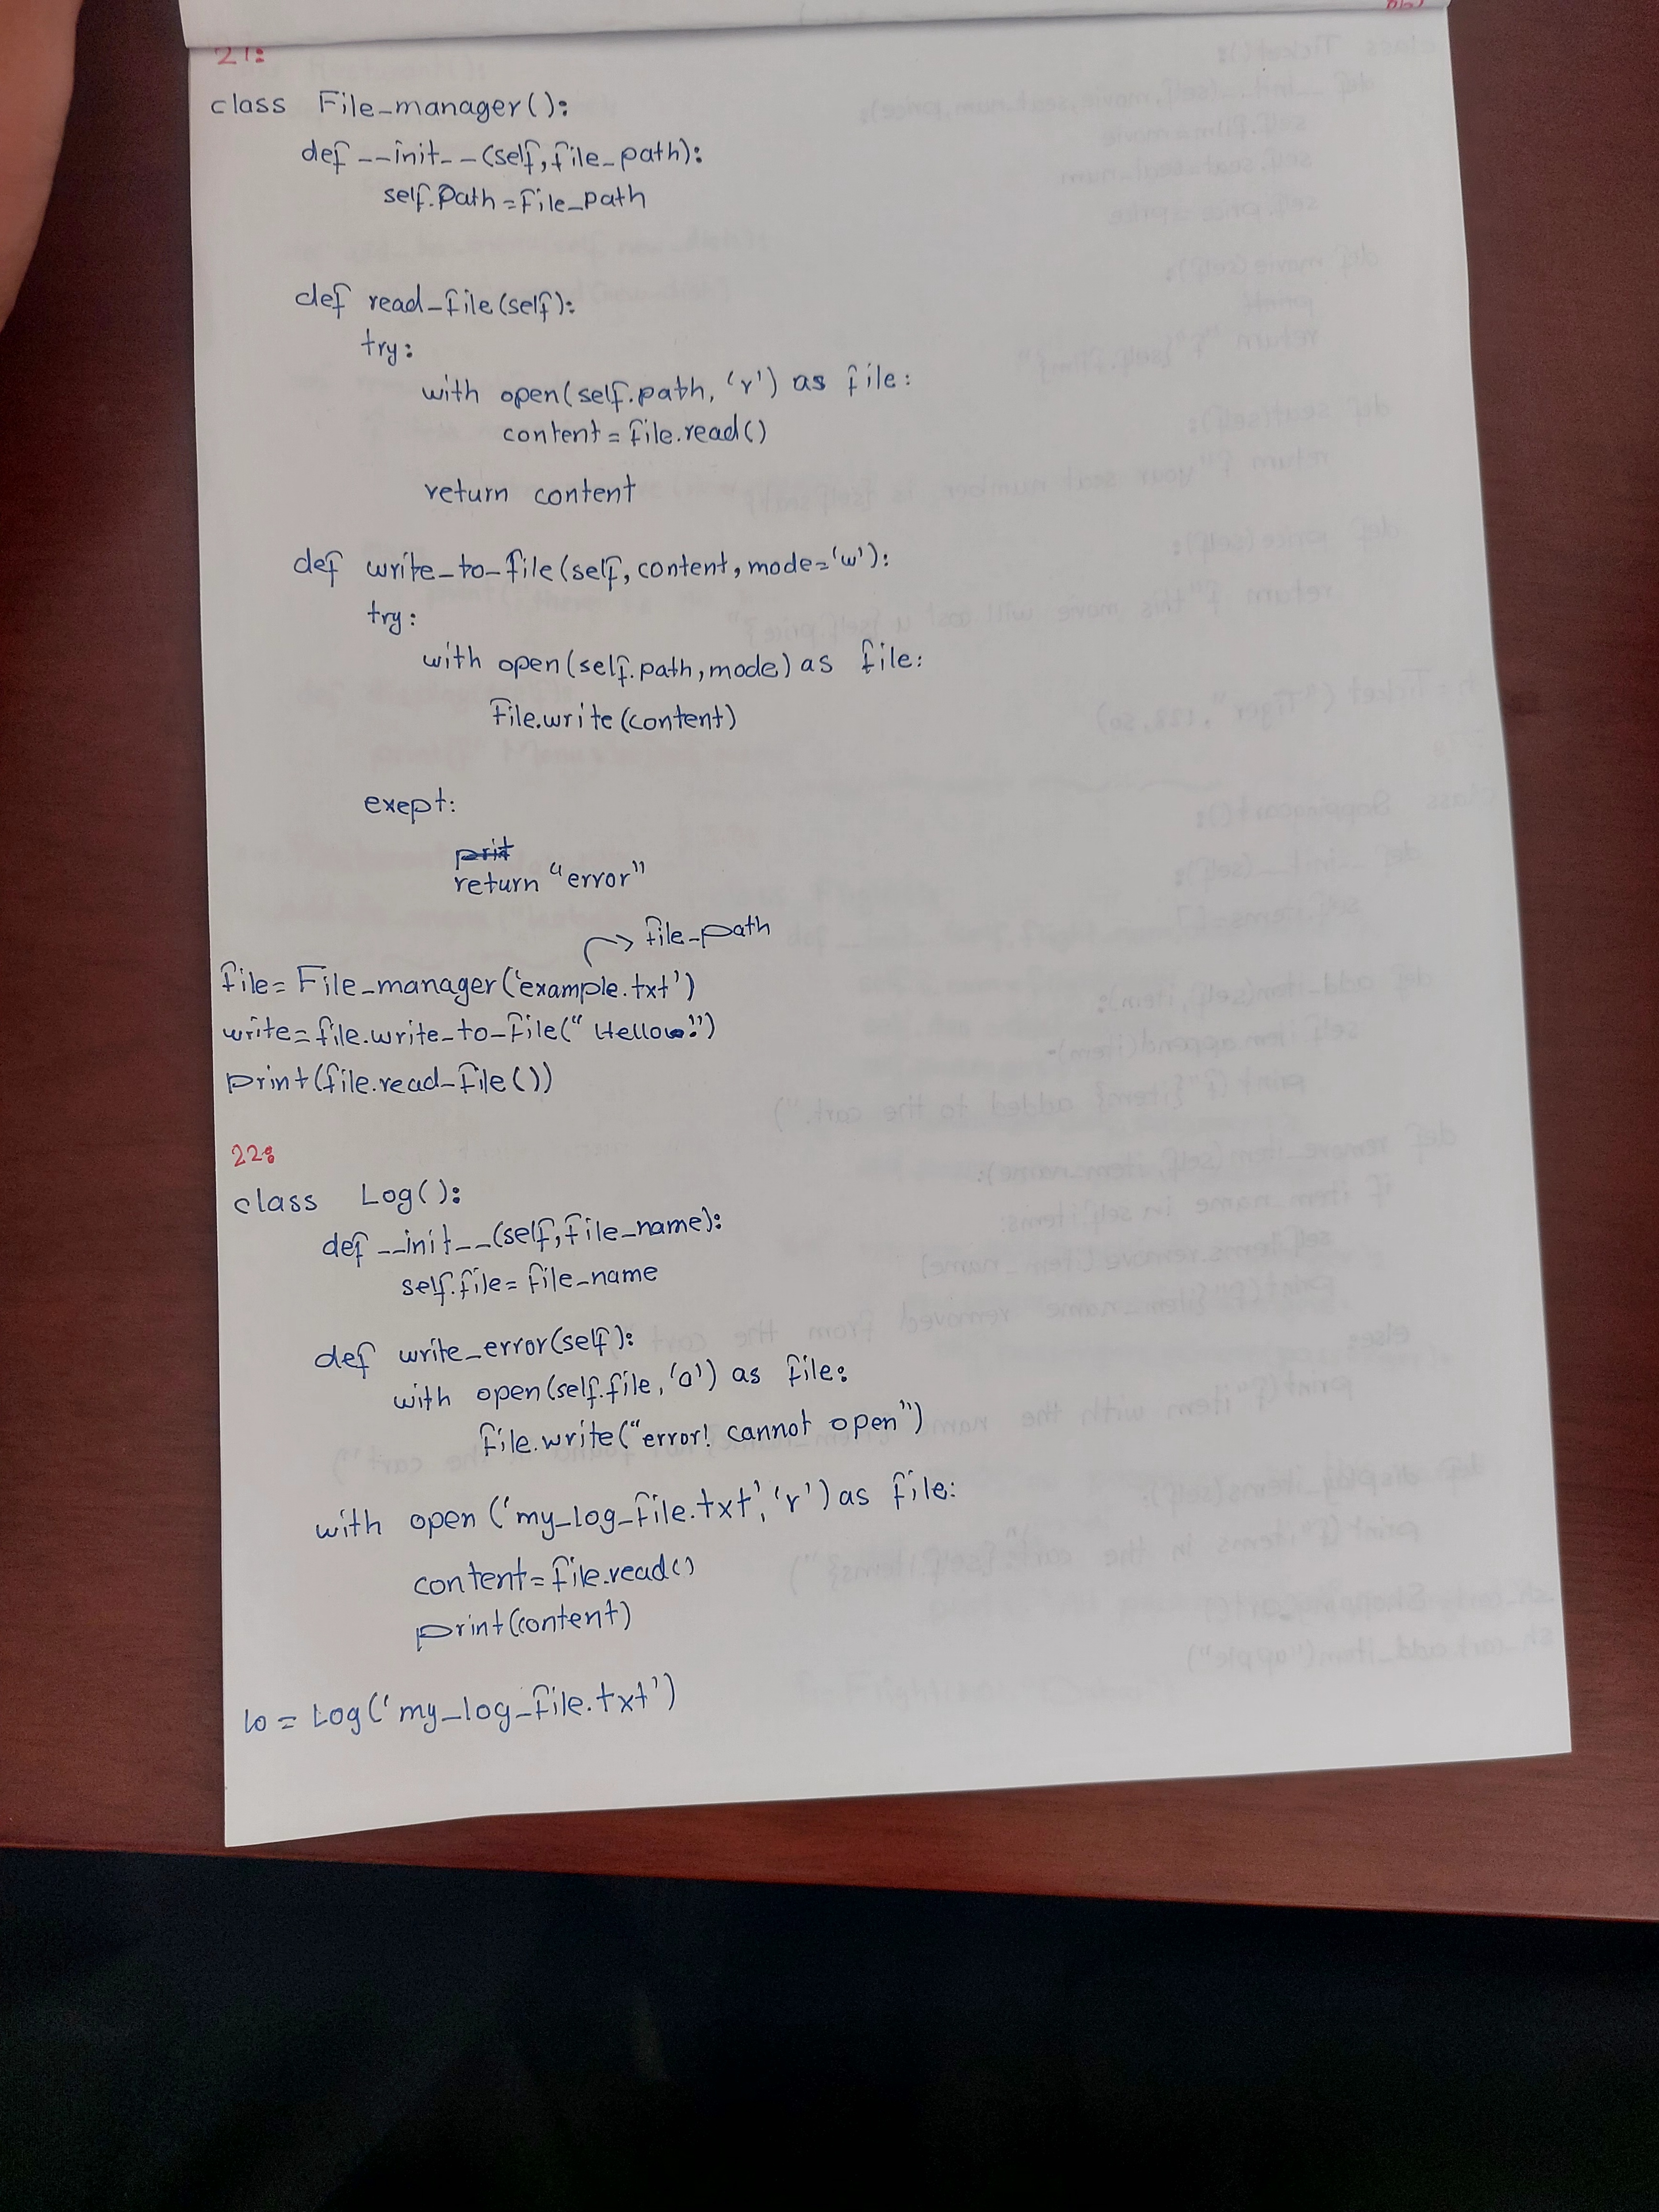 21:
class File_manager():
def __init__(self, file_path):
self.Path = File_path
def read_file(self):
try:
with open(self.path, 'r') as file:
content = file.read()
return content
def write_to_file(self, content, mode='w'):
try:
with open(self.path, mode) as file:
File.write(content)
exept:
return "error"
file_path
file = File_manager('example.txt')
write = file.write_to_file("Hello!")
print(file.read_file())
22:
class Log():
def __init__(self, file_name):
self.file = file_name
def write_error(self):
with open(self.file, 'a') as file:
file.write("error! cannot open")
with open('my_log_file.txt', 'r') as file:
content = file.read()
print(content)
lo = Log('my_log_file.txt')